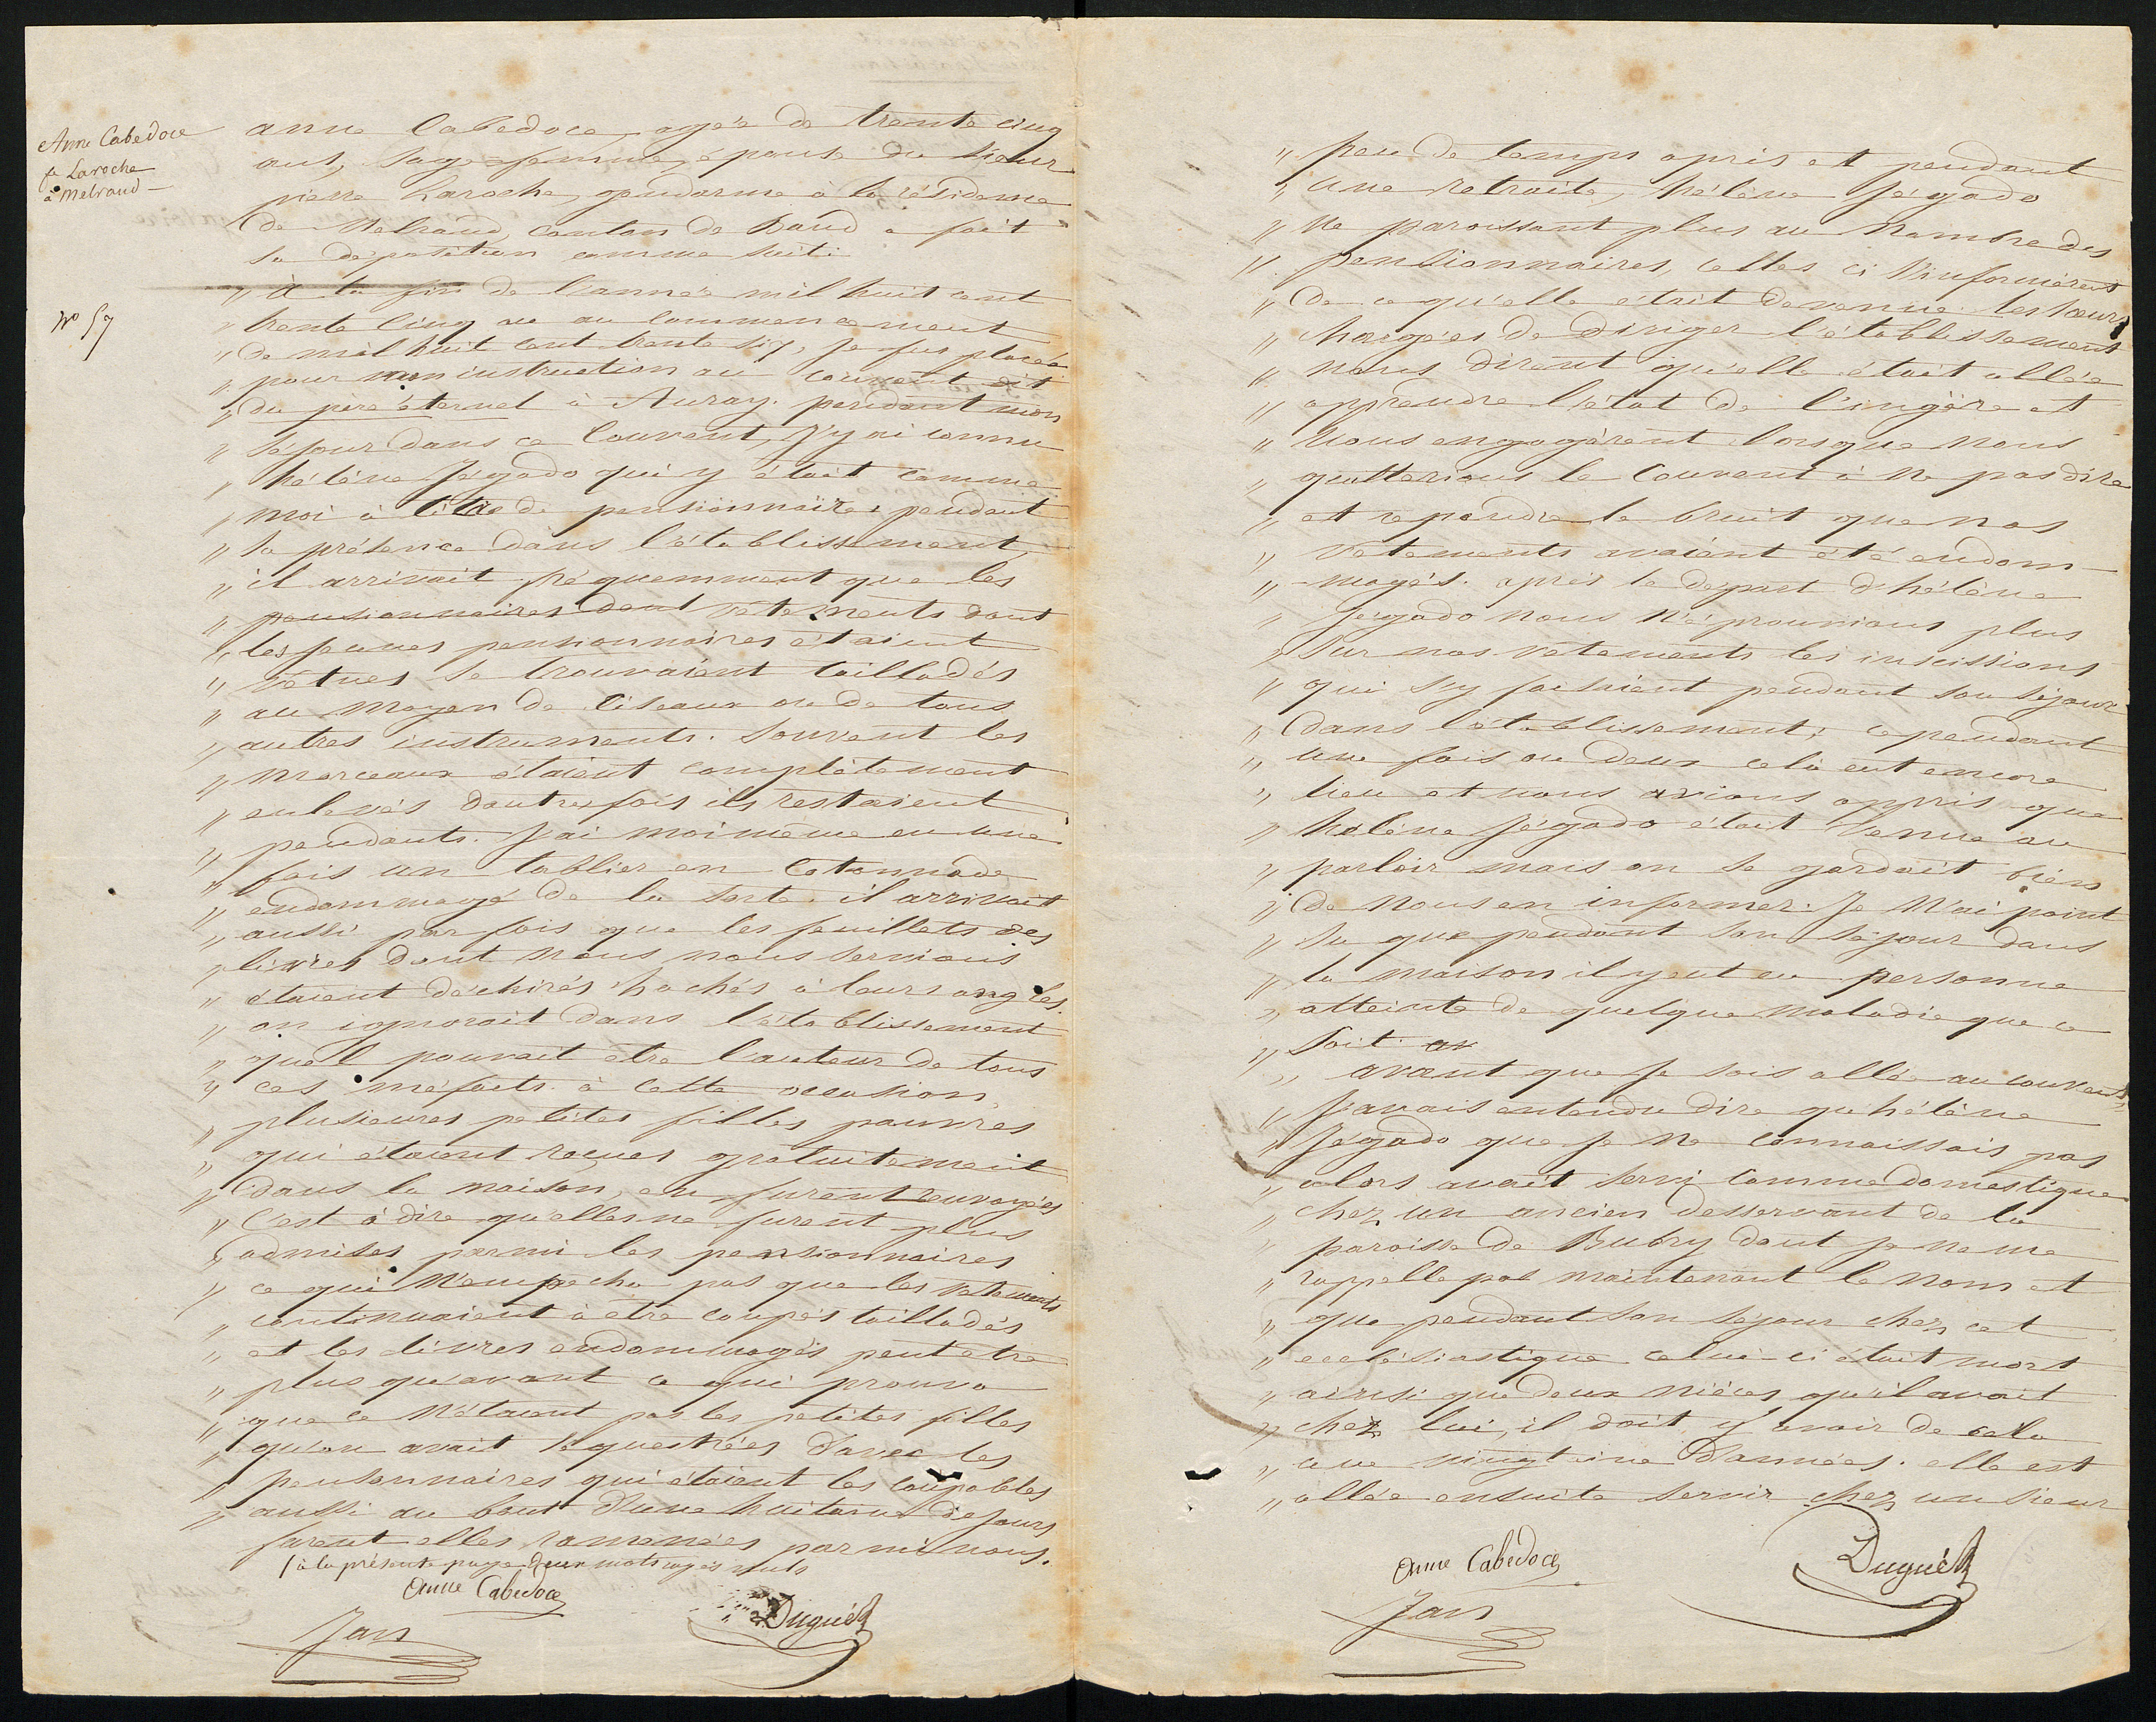 Anne Cabedoce
fe Laroche
à Melrand —
anne Cabedoce, agée de trente cinq
ans, sage-femme, épouse du sieur
pierre Laroche, gendarme à la résidence
de Melrand, canton de Baud a fait
sa déposition comme suit:
N° 57
" à la fin de l'année mil huit cent
" trente cinq ou au commencement
" de mil huit cent trente six, je fus placée
" pour mon instruction au couvent dit
" du père éternel à Auray. pendant mon
" séjour dans ce Couvent, j'y ai connu
" hélène Jégado qui y était comme
" moi à titre de pensionnaire. pendant
" sa présence dans l'établissement,
" il arrivait fréquemment que les
" pensionnaires dont vêtements dont
" les jeunes pensionnaires étaient
" vêtues se trouvaient tailladés
" au moyen de ciseaux ou de tous
" autres instruments. Souvent les
" morceaux étaient complètement
" enlevés dautres fois ils restaient
" pendants. J'ai moi même eu une
" fois un tablier en Cotonnade
" endommagé de la sorte. il arrivait
" aussi par fois que les feuillets des
" livres dont nous nous servions
" étaient déchirés hachés à leurs angles.
" on ignorait dans l'établissement
" quel pouvait etre l'auteur de tous
" ces méfaits. à cette occasion,
" plusieures petites filles pauvres
" qui étaient reçues gratuitement
" dans la maison, en furent renvoyées
" C'est à dire qu'elles ne furent plus
" admises parmi les pensionnaires
" ce qui n'empecha pas que les vetements
" continuaient à etre coupés tailladés
" et les livres endommagés peut etre
" plus qu'avant ce qui prouva
" que ce n'étaient pas les petites filles
" qu'on avait séquestrées d'avec les
" pensonnaires qui étaient les coupables
" aussi au bout d'une huitaine de jours
furent elles ramenées parmi nous.
/ à la présente page deux mots rayés nuls
Anne Cabedoce
Jan
Duguéh
" peu de temps après et pendant
" une retraite, hélène Jégado
" ne paroissant plus au nombre des
" pensionnaires, celles ci s'informèrent
" de ce qu'elle était devenue. les soeurs
" chargées de diriger l'établissement
" nous dirent qu'elle était allée
" apprendre l'état de lingère et
" nous engagèrent lorsque nous
" quitterions le Couvent à ne pas dire
" et repandre le bruit que nos
" vetements avaient été endom-
" magés. après le départ d'hélène
" Jégado nous n'éprouvions plus
" sur nos vêtements les incissions
" qui s'y faisaient pendant son séjour
" dans l'établissement; cependant
" une fois ou deux cela eut encore
" lieu et nous avions appris que
" hélène Jégado était venue au
" parloir mais on se gardait bien
" de nous en informer. Je n'ai point
" su que pendant son séjour dans
" la maison il y eut eu personne
" atteinte de quelque maladie que ce
" soit. av
" avant que je sois allée au couvent,
" j'avais entendu dire qu'hélène
" Jégado que je ne connaissais pas
" alors avait servi comme domestique
" chez un ancien desservant de la
" paroisse de Bubry dont je ne me
" rappelle pas maintenant le nom et
" que pendant son séjour chez cet
" ecclésiastique celui-ci était mort
" ainsi que deux nièces qu'il avait
" chez lui, il doit y avoir de cela
" une vingtaine d'années. elle est
" allée ensuite servir chez un sieur
Anne Cabedoce
Jan
Duguéh